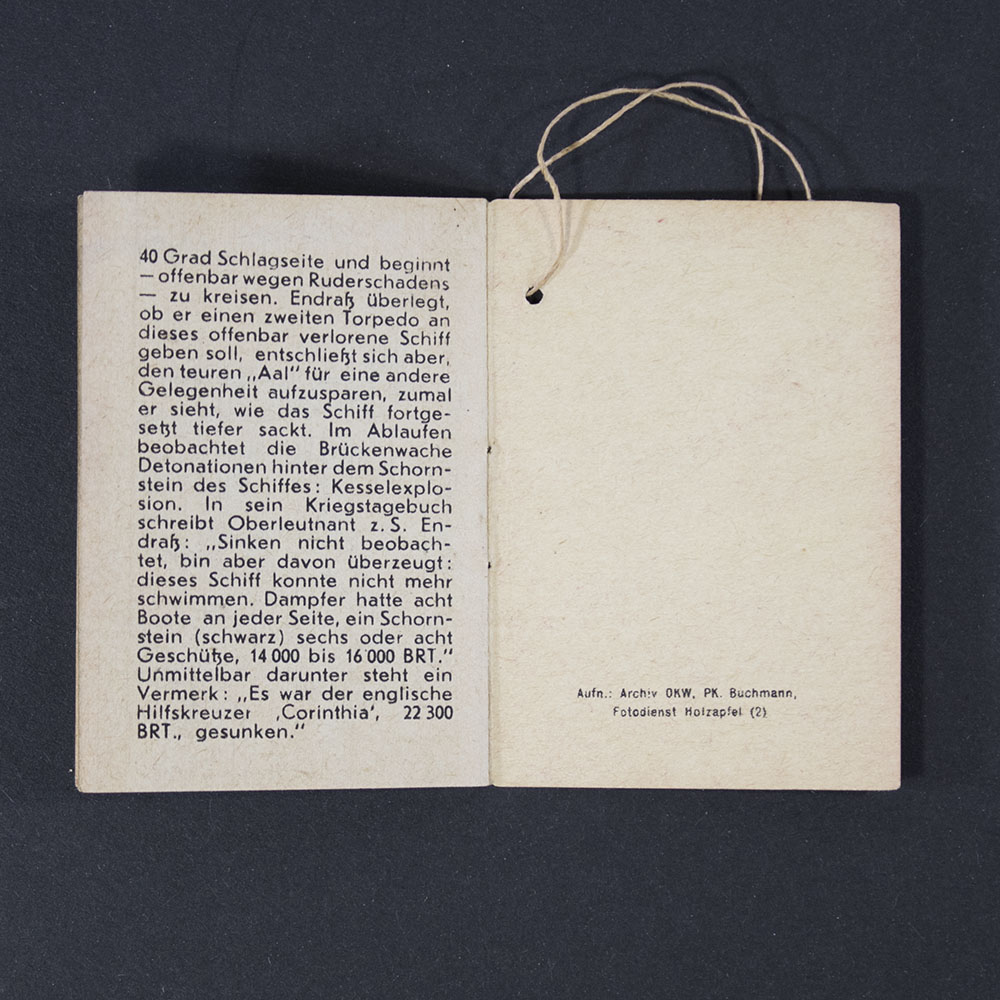 40 Grad Schlagseite und beginnt
— offenbar wegen Ruderschadens
— zu kreisen. Endraß überlegt,
ob er einen zweiten Torpedo an
dieses offenbar verlorene Schiff
geben soll, entschließt sich aber,
den teuren „Aal“ für eine andere
Gelegenheit aufzusparen, zumal
er sieht, wie das Schiff fortge-
setzt tiefer sackt. Im Ablaufen
beobachtet die Brückenwache
Detonationen hinter dem Schorn-
stein des Schiffes: Kesselexplo-
sion. In sein Kriegstagebuch
schreibt Oberleutnant z. S. En-
draß: „Sinken nicht beobach-
tet, bin aber davon überzeugt:
dieses Schiff konnte nicht mehr
schwimmen. Dampfer hatte acht
Boote an jeder Seite, ein Schorn-
stein (schwarz) sechs oder acht
Geschütze, 14 000 bis 16 000 BRT.“
Unmittelbar darunter steht ein
Vermerk: „Es war der englische
Hilfskreuzer ‚Corinthia‘, 22 300
BRT., gesunken.“
Aufn.: Archiv OKW, PK. Buchmann,
Fotodienst Holzapfel (2)